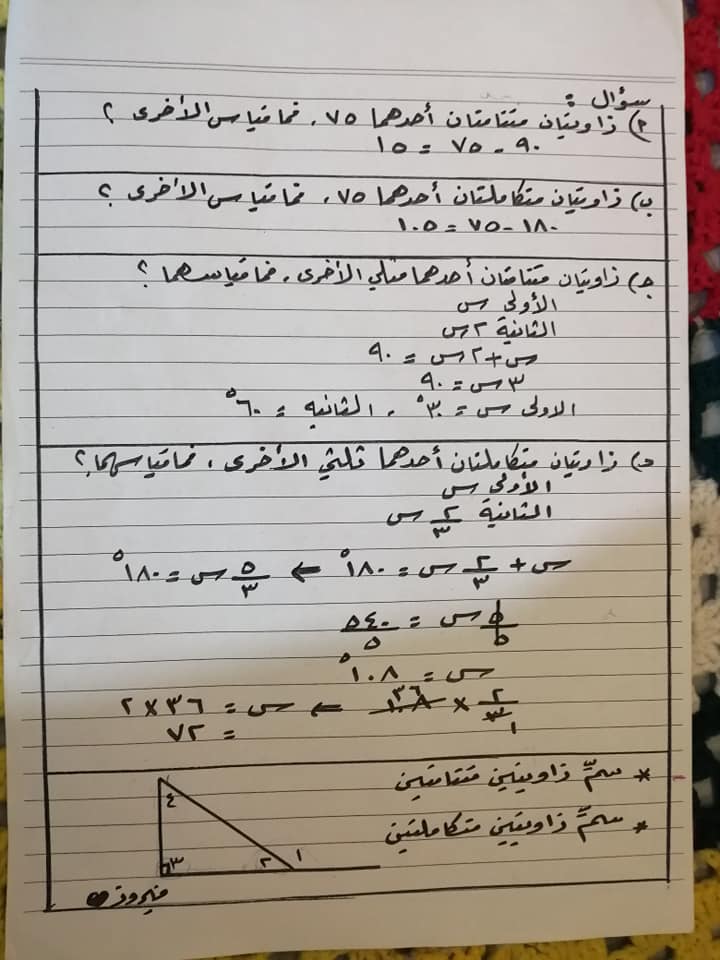 سؤال :
أ) زاويتان متتامتان أحدهما ٧٥، فما قياس الأخرى ؟
٩٠ - ٧٥ = ١٥
ب) زاويتان متكاملتان أحدهما ٧٥، فما قياس الأخرى ؟
١٨٠ - ٧٥ = ١٠٥
جـ) زاويتان متتامتان أحدهما مثلي الأخرى، فما قياسهما ؟
الأولى س
الثانية ٢س
س + ٢س = ٩٠
٣س = ٩٠
الاولى س = ٣٠° ، الثانيه = ٦٠°
د) زاويتان متكاملتان أحدهما ثلثي الأخرى، فما قياسهما؟
الأولى س
الثانية ٢/٣ س
س + ٢/٣ س = ١٨٠° ← ٥/٣ س = ١٨٠°
٥/٥ س = ٥٤٠/٥
س = ١٠٨°
٢/٣ × ١٠٨ ← س = ٣٦ × ٢
١ ٣٦
= ٧٢
* سمِّ زاويتين متتامتين
* سمِّ زاويتين متكاملتين
٤
١ ٢ ٣
فيروز